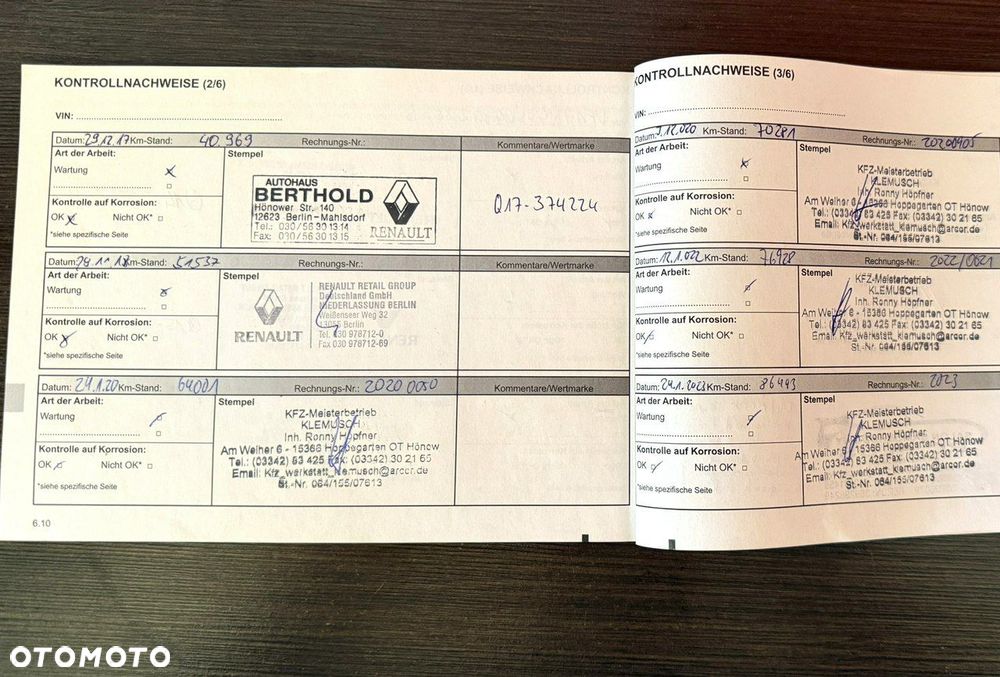 KONTROLLNACHWEISE (2/6)
VIN:
Datum: 29.12.17 Km-Stand: 40.969 Rechnungs-Nr.: Kommentare/Wertmarke
Art der Arbeit: Stempel
Wartung
AUTOHAUS
BERTHOLD
Hönower Str. 140
12623 Berlin-Mahlsdorf
Tel.: 030/56 30 13 14
Fax: 030/56 30 13 15 RENAULT
Q17-374224
Kontrolle auf Korrosion:
OK Nicht OK*
*siehe spezifische Seite
Datum: Km-Stand: 51537 Rechnungs-Nr.: Kommentare/Wertmarke
Art der Arbeit: Stempel
Wartung
RENAULT
RENAULT RETAIL GROUP
Deutschland GmbH
NIEDERLASSUNG BERLIN
Weißenseer Weg 32
13055 Berlin
Tel. 030 978712-0
Fax 030 978712-69
Kontrolle auf Korrosion:
OK Nicht OK*
*siehe spezifische Seite
Datum: 24.1.20 Km-Stand: 64001 Rechnungs-Nr.: 2020 0050 Kommentare/Wertmarke
Art der Arbeit: Stempel
Wartung
KFZ-Meisterbetrieb
KLEMUSCH
Inh. Ronny Höpfner
Am Weiher 6 - 15366 Hoppegarten OT Hönow
Tel.: (03342) 83 425 Fax: (03342) 30 21 65
Email: Kfz_werkstatt_klemusch@arcor.de
St.-Nr. 064/155/07613
Kontrolle auf Korrosion:
OK Nicht OK*
*siehe spezifische Seite
6.10
KONTROLLNACHWEISE (3/6)
VIN:
Datum: Km-Stand: 70281 Rechnungs-Nr.: 20200905
Art der Arbeit: Stempel
Wartung
KFZ-Meisterbetrieb
KLEMUSCH
Inh. Ronny Höpfner
Am Weiher 6 - 15366 Hoppegarten OT Hönow
Tel.: (03342) 83 425 Fax: (03342) 30 21 65
Email: Kfz_werkstatt_klemusch@arcor.de
St.-Nr. 064/155/07613
Kontrolle auf Korrosion:
OK Nicht OK*
*siehe spezifische Seite
Datum: 12.1.022 Km-Stand: 76928 Rechnungs-Nr.: 2022/0021
Art der Arbeit: Stempel
Wartung
KFZ-Meisterbetrieb
KLEMUSCH
Inh. Ronny Höpfner
Am Weiher 6 - 15366 Hoppegarten OT Hönow
Tel.: (03342) 83 425 Fax: (03342) 30 21 65
Email: Kfz_werkstatt_klemusch@arcor.de
St.-Nr. 064/155/07613
Kontrolle auf Korrosion:
OK Nicht OK*
*siehe spezifische Seite
Datum: 24.1.2023 Km-Stand: 86493 Rechnungs-Nr.: 2023
Art der Arbeit: Stempel
Wartung
KFZ-Meisterbetrieb
KLEMUSCH
Inh. Ronny Höpfner
Am Weiher 6 - 15366 Hoppegarten OT Hönow
Tel.: (03342) 83 425 Fax: (03342) 30 21 65
Email: Kfz_werkstatt_klemusch@arcor.de
St.-Nr. 064/155/07613
Kontrolle auf Korrosion:
OK Nicht OK*
*siehe spezifische Seite
OTOMOTO